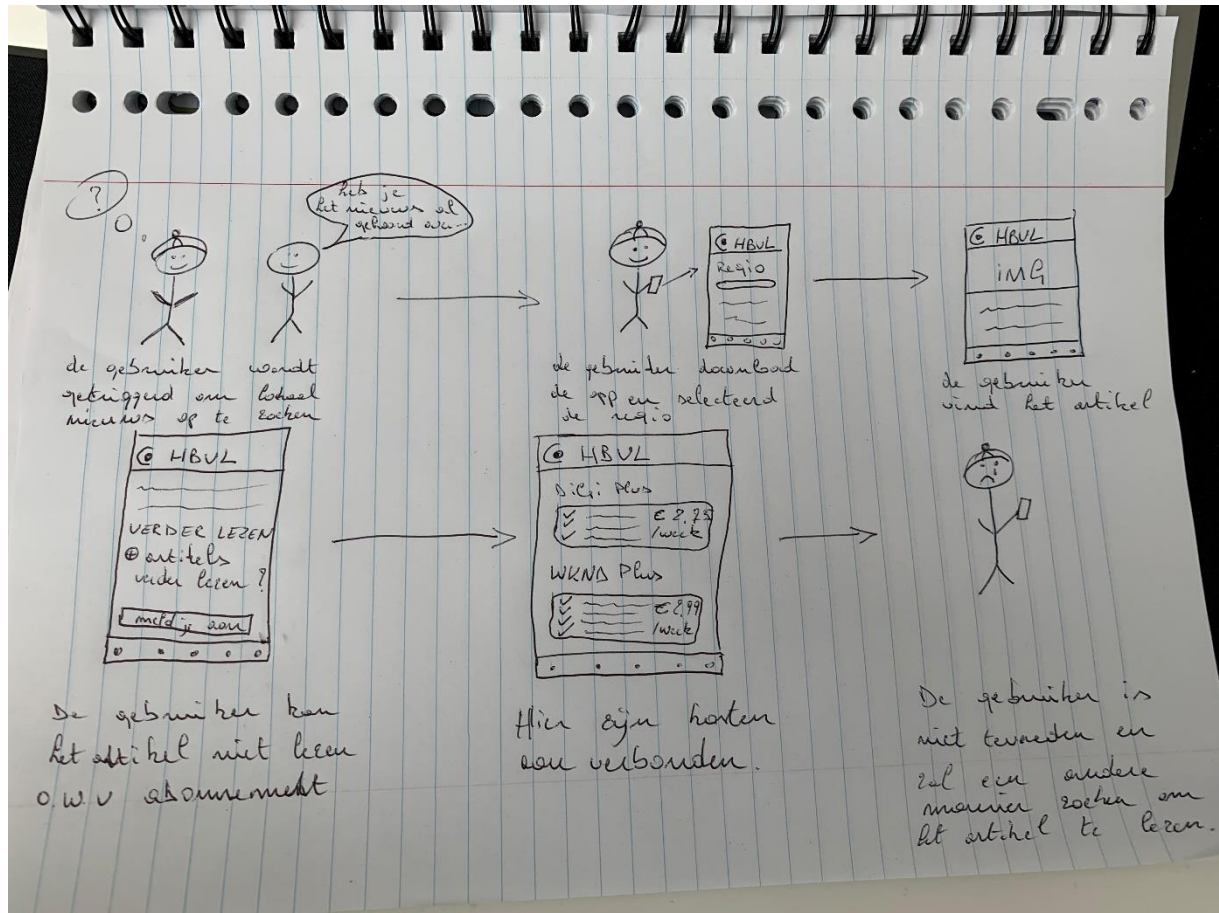 ?
heb je
het nieuws al
gehoord over...
de gebruiker wordt
getriggerd om lokaal
nieuws op te zoeken
HBVL
Regio
de gebruiker download
de app en selecteerd
de regio
HBVL
IMG
de gebruiker
vind het artikel
HBVL
VERDER LEZEN
⊕ artikels
verder lezen ?
meld je aan
De gebruiker kan
het artikel niet lezen
o.w.v abonnement
HBVL
DiGi Plus
/week
WKND Plus
/week
Hier zijn kosten
aan verbonden.
De gebruiker is
niet tevreden en
zal een andere
manier zoeken om
het artikel te lezen.